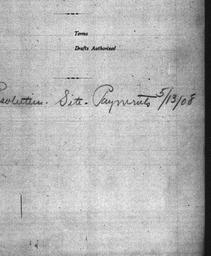 Terms
Drafts Authorized
Site - Payments 5/13/08